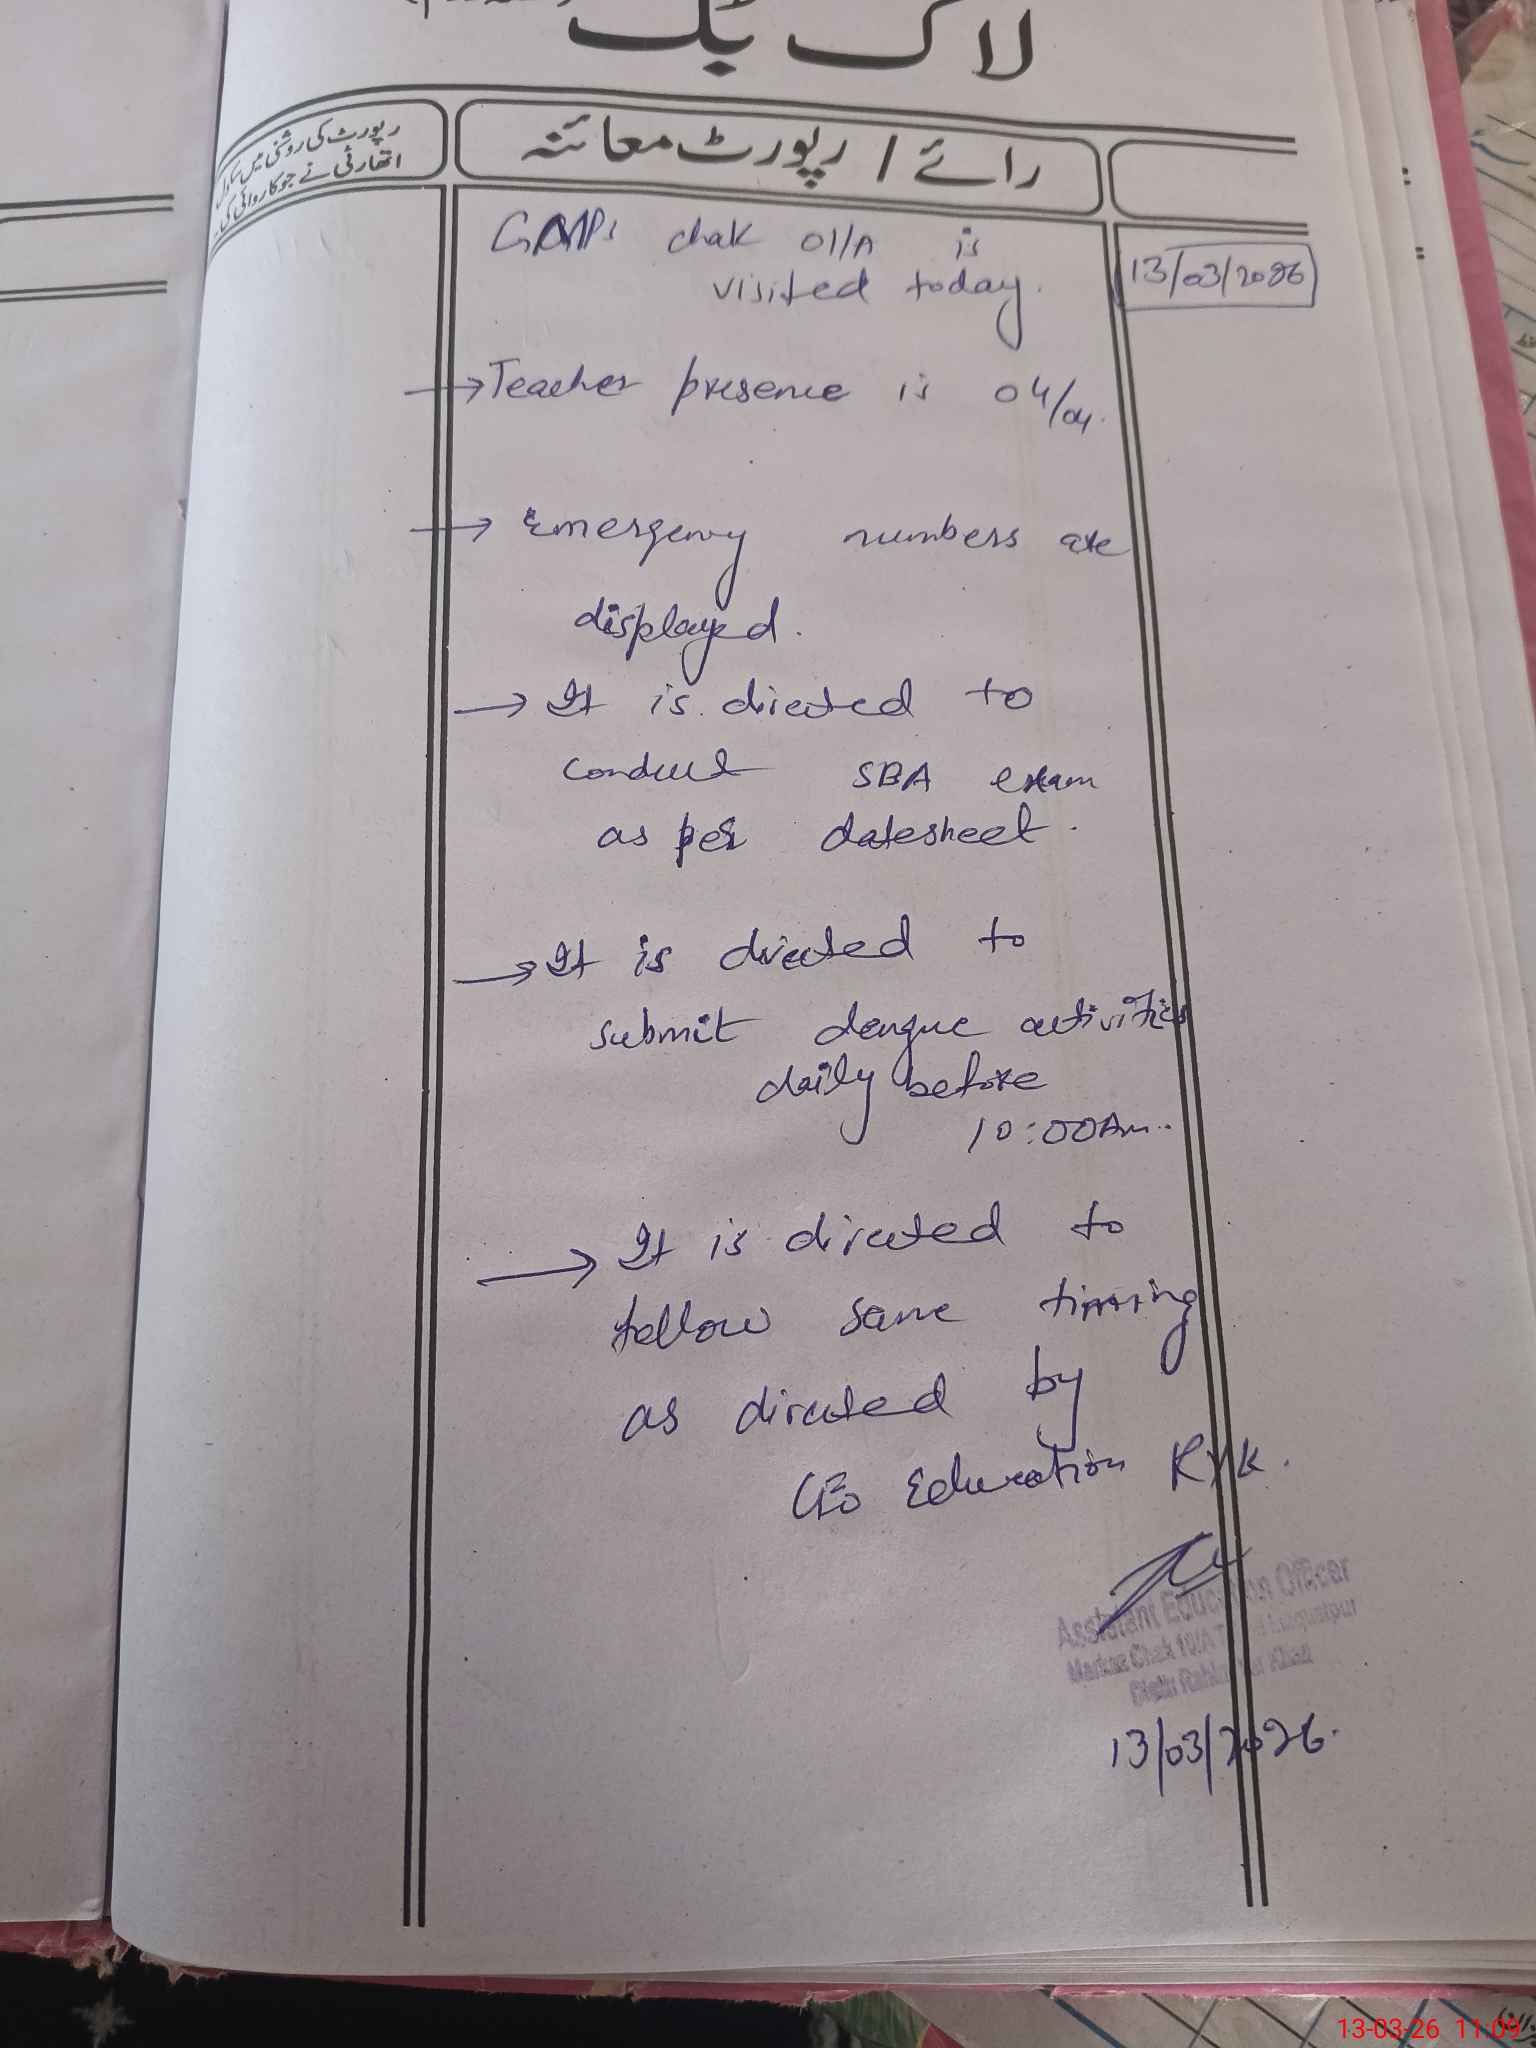 لاگ بک
رائے / رپورٹ معائنہ
رپورٹ کی روشنی میں
اتھارٹی نے جو کاروائی کی۔
13/03/2026
GMPS chak 01/A is
visited today.
→ Teacher presence is 04/04.
→ Emergency numbers are
displayed.
→ It is directed to
conduct SBA exam
as per datesheet.
→ It is directed to
submit dengue activities
daily before
10:00Am.
→ It is directed to
follow same timing
as directed by
CEO Education RYK.
Assistant Education Officer
Markaz Chak 10/A Liaquatpur
Distt: Khan
13/03/2026.
13-03-26 11:09